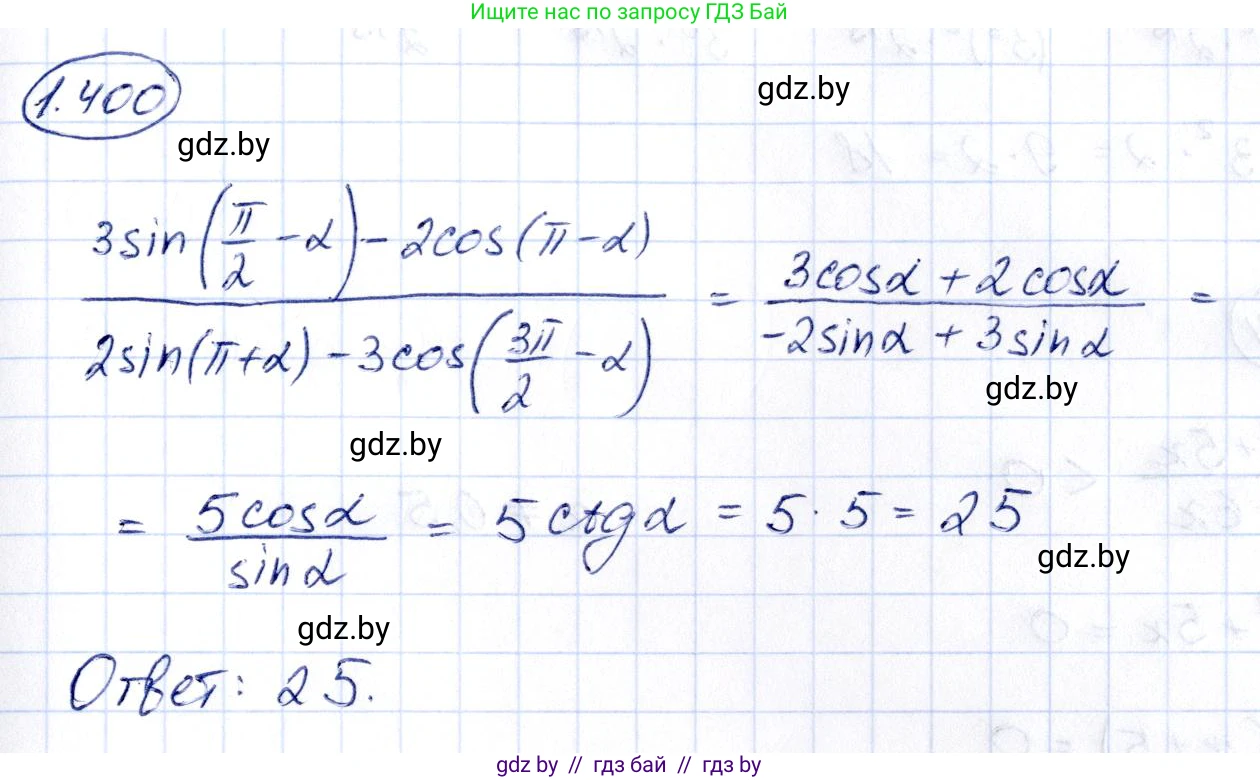 Ищите нас по запросу ГДЗ Бай
1.400
gdz.by
gdz.by
3sin(π/2 - α) - 2cos(π - α) / 2sin(π + α) - 3cos(3π/2 - α) = 3cosα + 2cosα / -2sinα + 3sinα =
gdz.by
gdz.by
= 5cosα / sinα = 5ctgα = 5·5 = 25
gdz.by
gdz.by
Ответ: 25.
gdz.by // гдз бай // гдз by